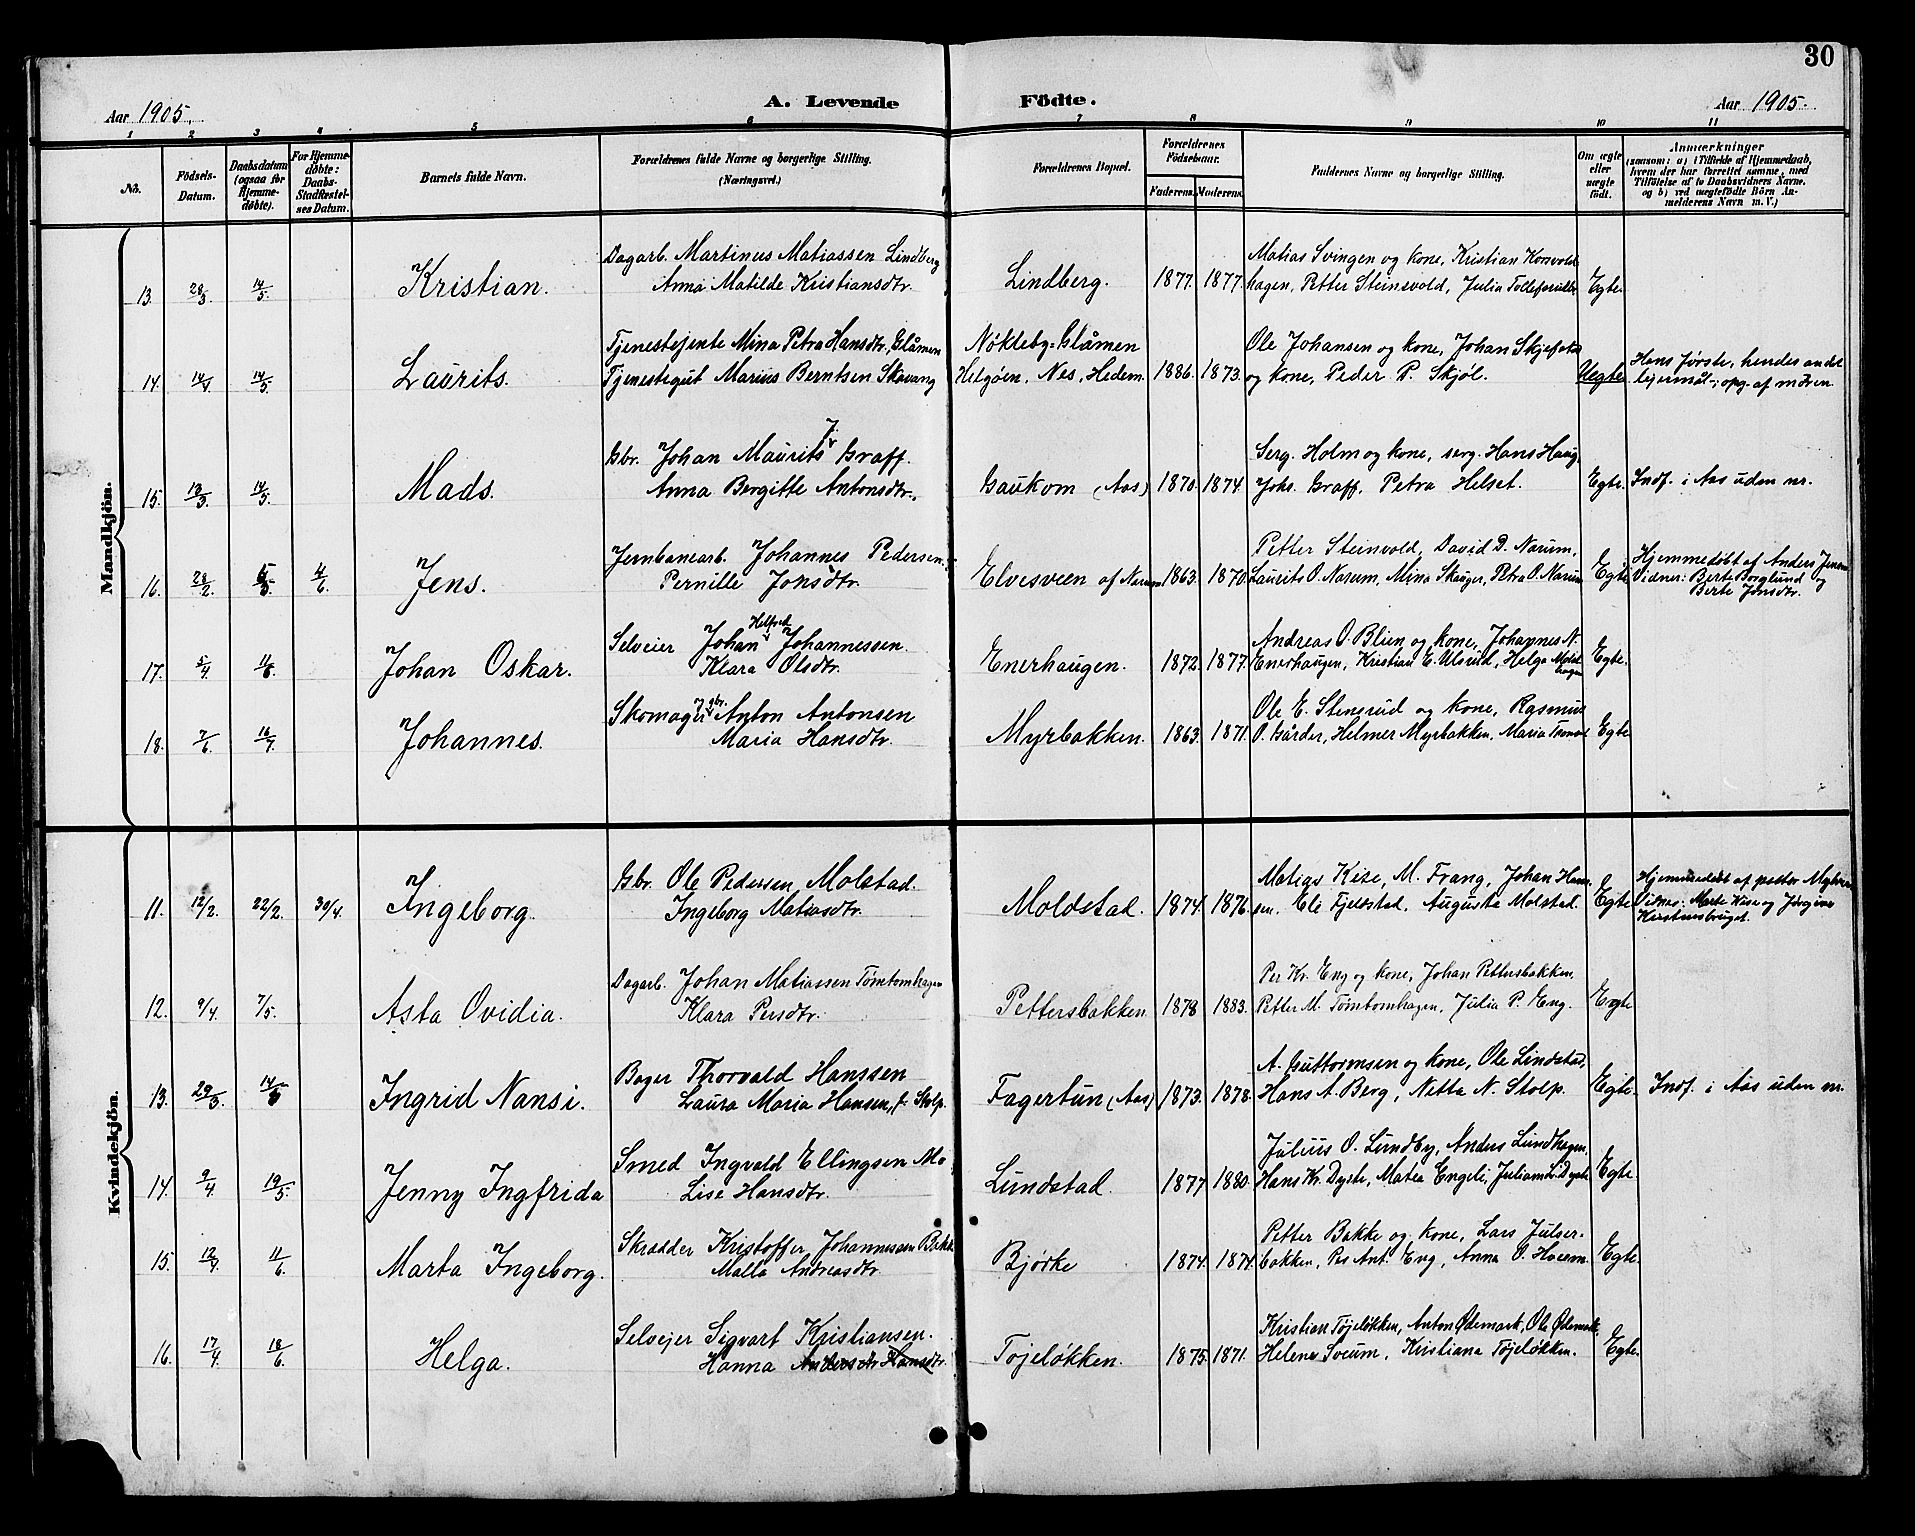 30
Aar 1905.
A. Levende Födte.
Aar 1905.
1 2 3 4 5 6 7 8 9 10 11
No.
Födsels-Datum.
Daabsdatum (ogsaa for Hjemme-døbte).
For Hjemme-døbte: Daabs-Stadfæstel-ses Datum.
Barnets fulde Navn.
Forældrenes fulde Navne og borgerlige Stilling. (Næringsvei.)
Forældrenes Bopæl.
Forældrenes Födselsaar.
Faderens. Moderens.
Faddernes Navne og borgerlige Stilling.
Om ægte eller uægte født.
Anmærkninger
(saasom: a) i Tilfælde af Hjemmedaab, hvem der har forrettet samme, med Tilføielse af to Daabsvidners Navne, og b) ved uægtefødte Börn Anmelderens Navn m. V.)
Mandkjön.
Dagarb. Martinus Matiassen Lindberg
Matias Svingen og kone, Kristian Korsvold-
13. 28/3. 14/5. Kristian. Anna Matilde Kristiansdtr. Lindberg. 1877. 1877. hagen, Petter Steinsvold, Julia Egte.
Tjenestejente Mina Petra Hansdtr, Glåmen
Nøkleby-Glåmen
Ole Johansen og kone, Johan
Hans første, hendes andet
14. 14/5. Laurits. Tjenestegut Marius Berntsen Skavang Helgøen, Nes, Hedem. 1886. 1873. og kone, Peder P. Skjøl. Uegte lejermål; opg. af moren
Gbr. Johan Maurits J. Graff.
Serg. Holm og kone, serg. Hans Haug,
15. 18/3. 14/5. Mads. Anna Bergitte Antonsdtr. Gaukom (Aas) 1870. 1874. Johs. Graff, Petra Helset. Egte. Indf. i Aas uden nr.
Jernbanearb. Johannes Pedersen.
Petter Steinvold, David D. Narum,
Hjemmedøbt af Anders Jensen
16. 28/2. 4/6 Jens. Pernille Jonsdtr. Elvesveen af Narum 1863. 1870. Laurits O. Narum, Mina Skauger, Petra O. Narum Egte Vidner: Berte Berglund og
Berte Jonsdtr.
Selveier Johan Helfred Johannessen.
Andreas O. Blien og kone, Johannes N.
17. 5/4. 11/6. Johan Oskar. Klara Olsdtr. Enerhaugen. 1872. 1877. Enerhaugen, Kristian E. Ulsrud, Helga Egte.
Skomager Anton Antonsen
Ole E. Stenerud og kone, Rasmus
18. 7/6. 16/7. Johannes. Maria Hansdtr. Myrbakken. 1863. 1871. O. Gårder, Helmer Myrbakken, Maria Egte
Kvindekjön.
Gbr. Ole Pedersen Molstad.
Matias Kise, M. Frang, Johan Han-
Hjemmedøbt af petter
11. 12/2. 22/2. 30/4. Ingeborg. Ingeborg Matiasdtr. Moldstad. 1874. 1876. sen, Eli Fjeldstad, Augusta Molstad. Egte Vidner: Marte Kise og Jørgine
Kirstinsbruget.
Dagarb. Johan Matiassen Tømtomhagen
Per Kr. Eng og kone, Johan Pettersbakken,
12. 9/4. 7/5. Asta Ovidia. Klara Persdtr. Pettersbakken. 1878 1883. Petter M. Tømtomhagen, Julia P. Eng. Egte
Bager Thorvald Hanssen
A. Guttormsen og kone, Ole Lindstad,
13. 29/3. Ingrid Nansi. Laura Maria Hansen, f. Stolp. Fagertun (Aas) 1873. 1878. Hans A. Berg, Netta N. Stolp. Egte. Indf. i Aas uden nr.
Smed Ingvald Ellingsen Mo
Julius O. Lundby, Anders Lundhagen,
14. 9/4. 19/5. Jenny Ingfrida Lise Hansdtr. Lundstad. 1877 1880. Hans Kr. Dyste, Matea Engeli, Juliam L. Dyste Egte.
Skrædder Kristoffer Johannessen Bakke
Petter Bakke og kone, Lars Julser-
15. 12/4. 11/6. Marta Ingeborg. Malla Andreasdtr. Bjørke 1874. 1874. bakken, Per Ant. Eng, Anna O. Egte.
Selvejer Sigvart Kristiansen.
Kristian Tøjeløkken, Anton Ødemark, Ole Ødemark,
16. 17/4. 18/6. Helga. Hanna Hansdtr. Tøjeløkken. 1875. 1871. Helene Sveum, Kristiana Tøjeløkken. Egte.